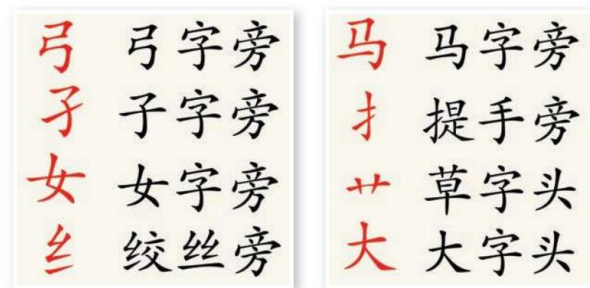 弓 弓字旁
孑 子字旁
女 女字旁
纟 绞丝旁
马 马字旁
扌 提手旁
艹 草字头
大 大字头